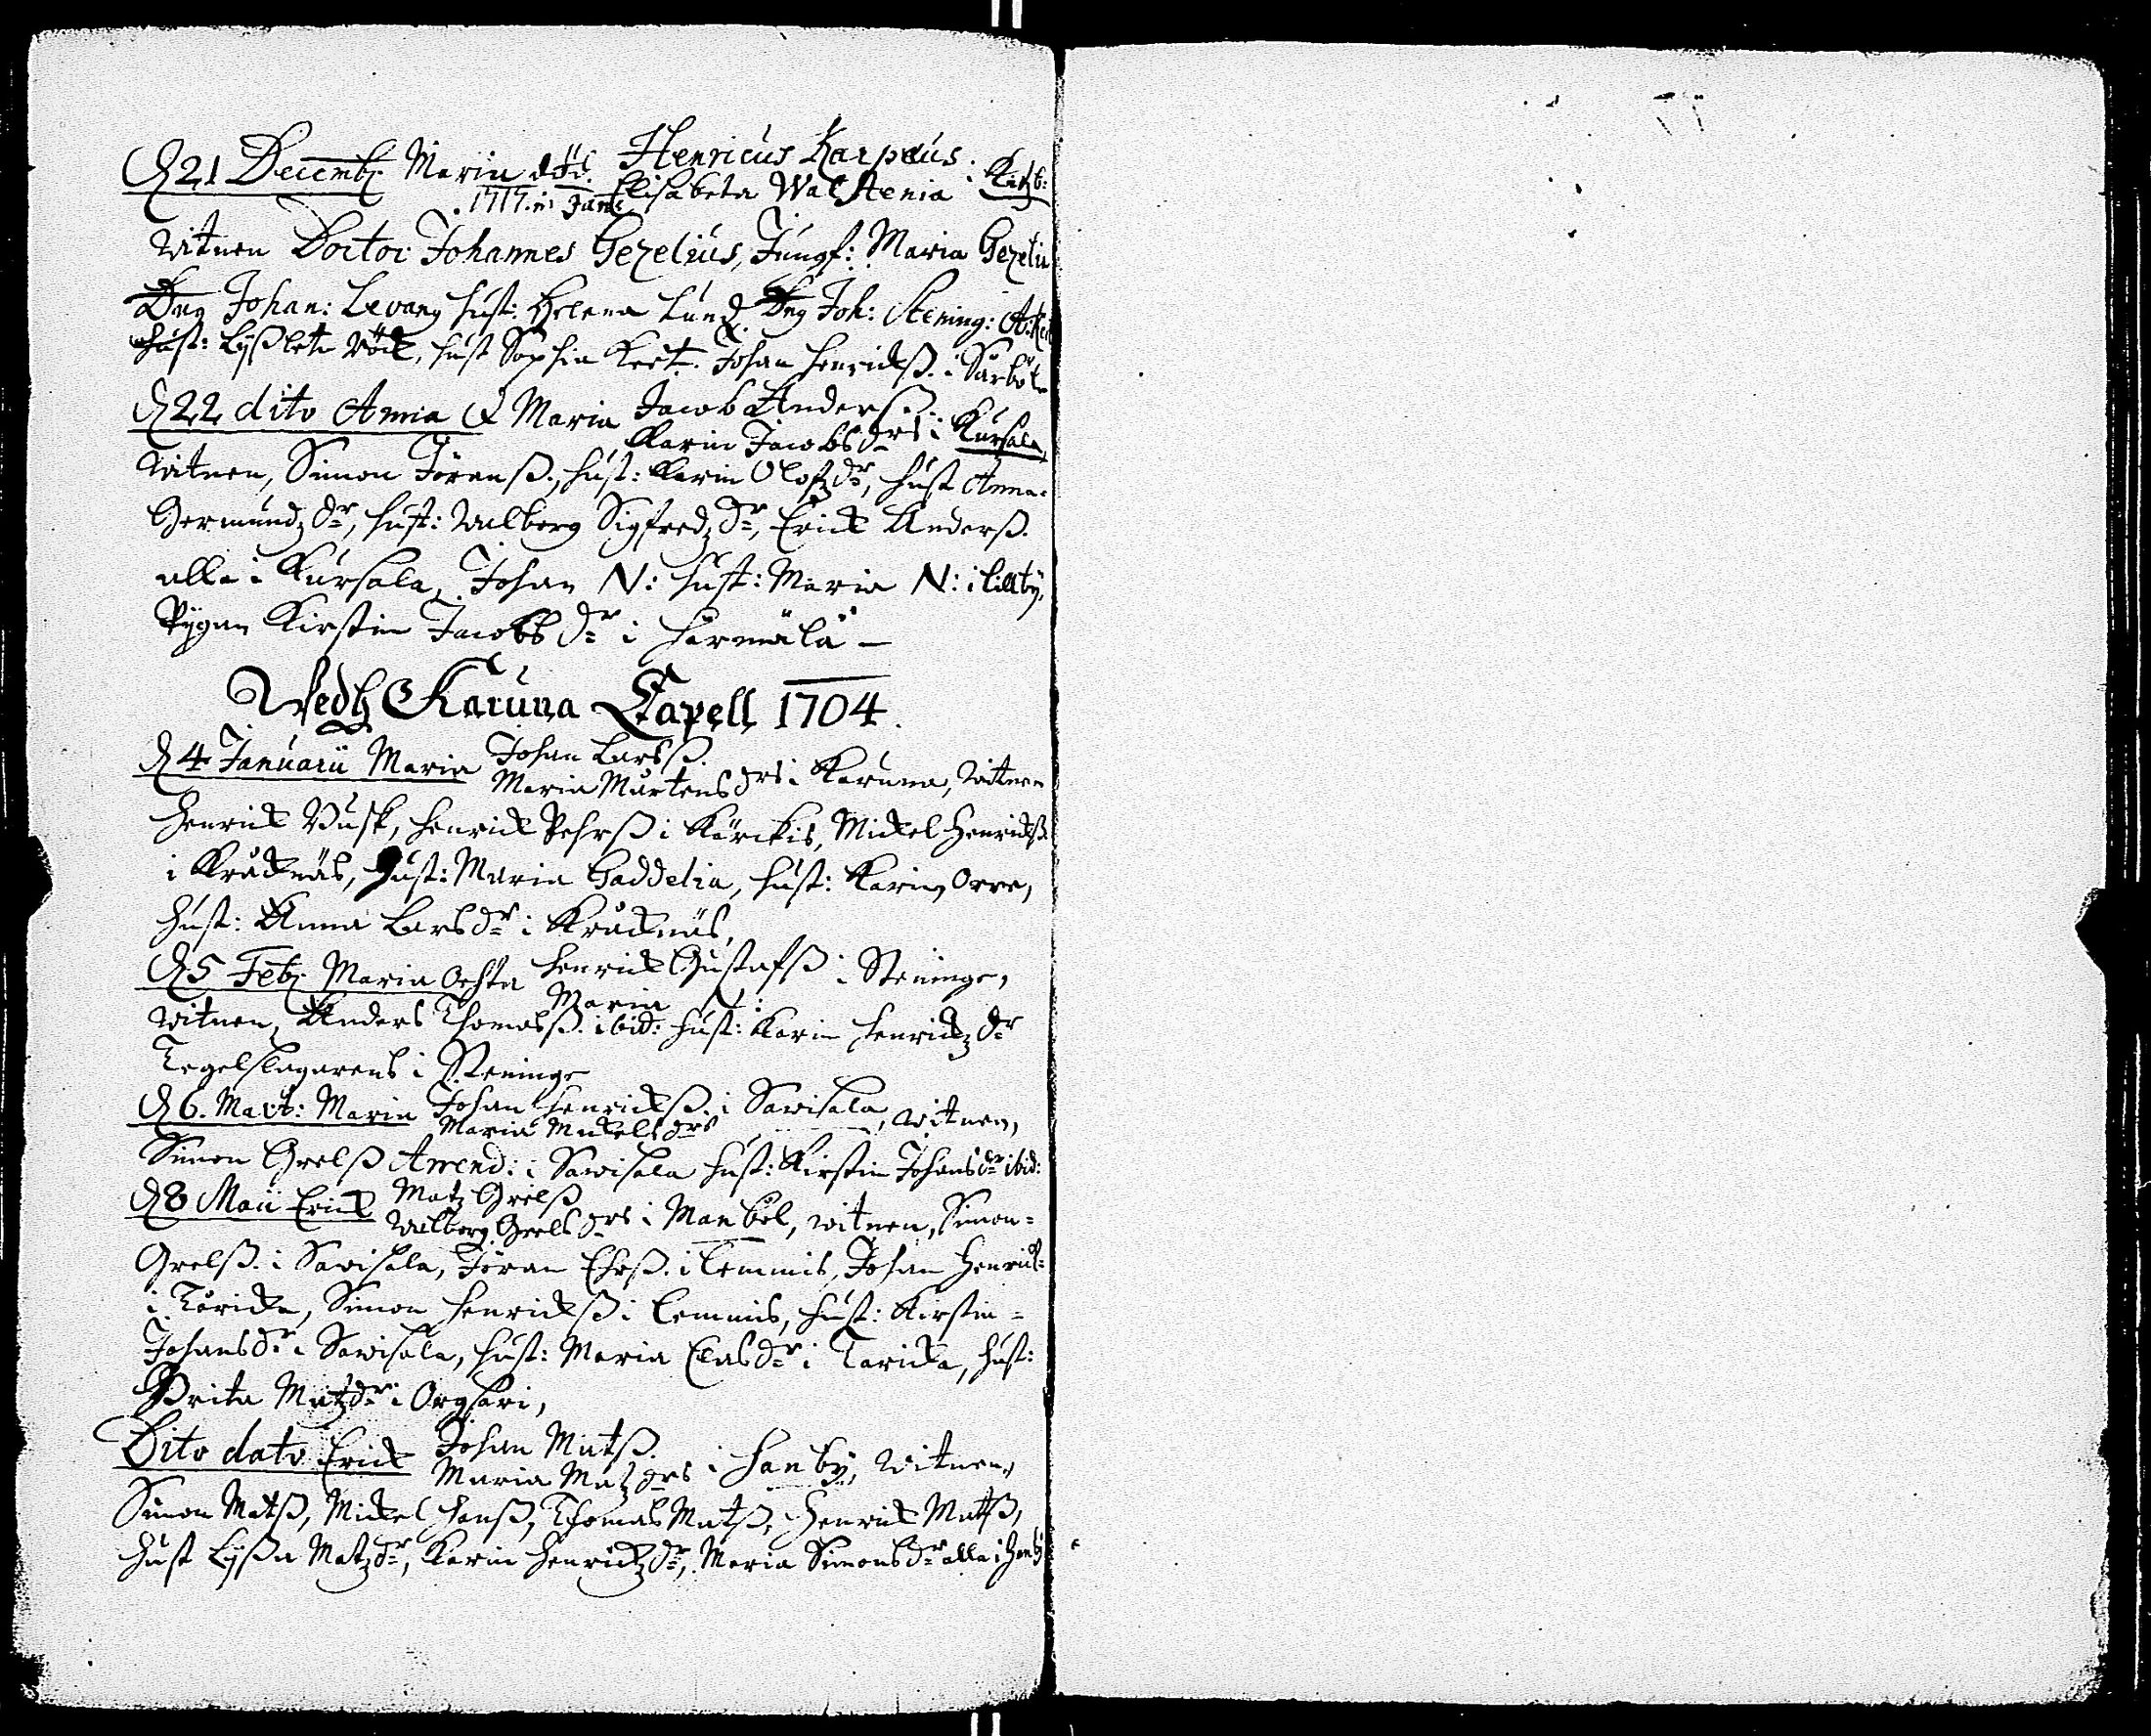 D 21 Decemb: Maria död. Henricus Karpæus.
1717. in Junii Elisabeta Walstenia i
witnen Doctor Johannes Gezelius, Jungf: Maria Gezelia
Dns Johan: Levang hust: Helena Lund. Dns Joh: Stening:
hust: Lißbeta Röck, hust Sophia Johan Henrickß. i
D 22 dito Anna & Maria Jacob Anderß.
Karin Jacobs drs i Kursala,
witnen, Simon Jöranß., hust: Karin Olofz dr, hust Anna
Germundz dr, hust: Walborg Sigfredz dr, Erick Anderß.
alla i Kursala, Johan N: hust: Maria N: i Lillby,
Pigan Kirstin Jacobs dr i Härmälä –
Wedh Karuna Capell 1704.
D 4 Januarii Maria Johan Larsß.
Maria Mårtens drs i Karuna, witnen
Henrick Rusk, Henrick Pehrß i Kärckis, Mickel Henrickß.
i Kråcknäs, hust: Maria Gaddelia, hust: Karin Orre,
hust: Anna Lars dr i Kråcknäs,
D 5 Feb: Maria Henrick Gustafß i Steninge,
Maria N:
witnen, Anders Thomasß. ibid: hust: Karin Henrickz dr
Tegelslagarens i Steninge
D 6. Mart: Maria Johan Henrickß. i Sawisala, witnen,
Maria Mickels drs
Simon Grelß Arrend: i Sawisala hust: Kirstin Johans dr ibid:
D 8 Maii Erick Matz Grelß
Walborg Grels drs i Manböl, witnen, Simon
Grelß. i Sawisala, Jöran Ehrß. i Lemmis, Johan Henrick
i Täricka, Simon Henrickß i Lemmis, hust: Kirstin
Johans dr i Sawisala, hust: Maria Clas dr i Taricka, hust:
Brita Matz dr i Orgsari,
Dito dato Erick Johan Matß.
Maria Matz drs i Hanby, witnen,
Simon Matß, Mickel Hanß, Thomas Matß, Henrick Matß,
hust Lißa Matz dr, Karin Henrickz dr, Maria Simons dr alla i Hanby